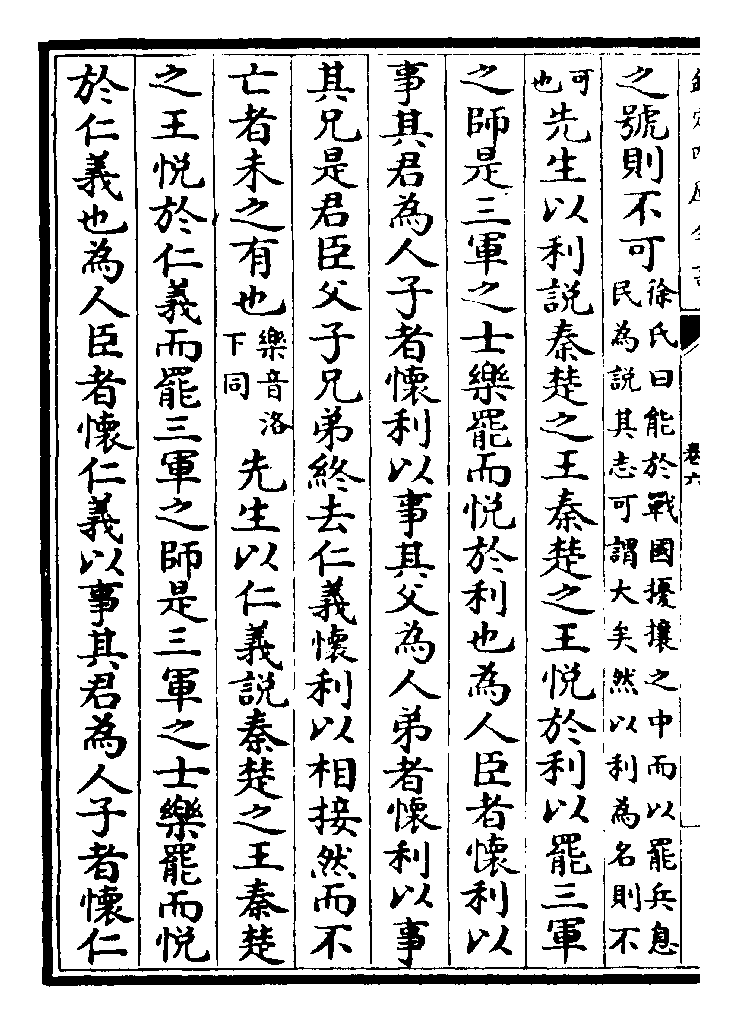 欽定四庫全書
卷六
之號則不可徐氏曰能於戰國擾攘之中而以罷兵息民為說其志可謂大矣然以利為名則不
可也先生以利說秦楚之王秦楚之王悅於利以罷三軍
之師是三軍之士樂罷而悅於利也為人臣者懷利以
事其君為人子者懷利以事其父為人弟者懷利以事
其兄是君臣父子兄弟終去仁義懷利以相接然而不
亡者未之有也樂音洛下同先生以仁義說秦楚之王秦楚
之王悅於仁義而罷三軍之師是三軍之士樂罷而悅
於仁義也為人臣者懷仁義以事其君為人子者懷仁